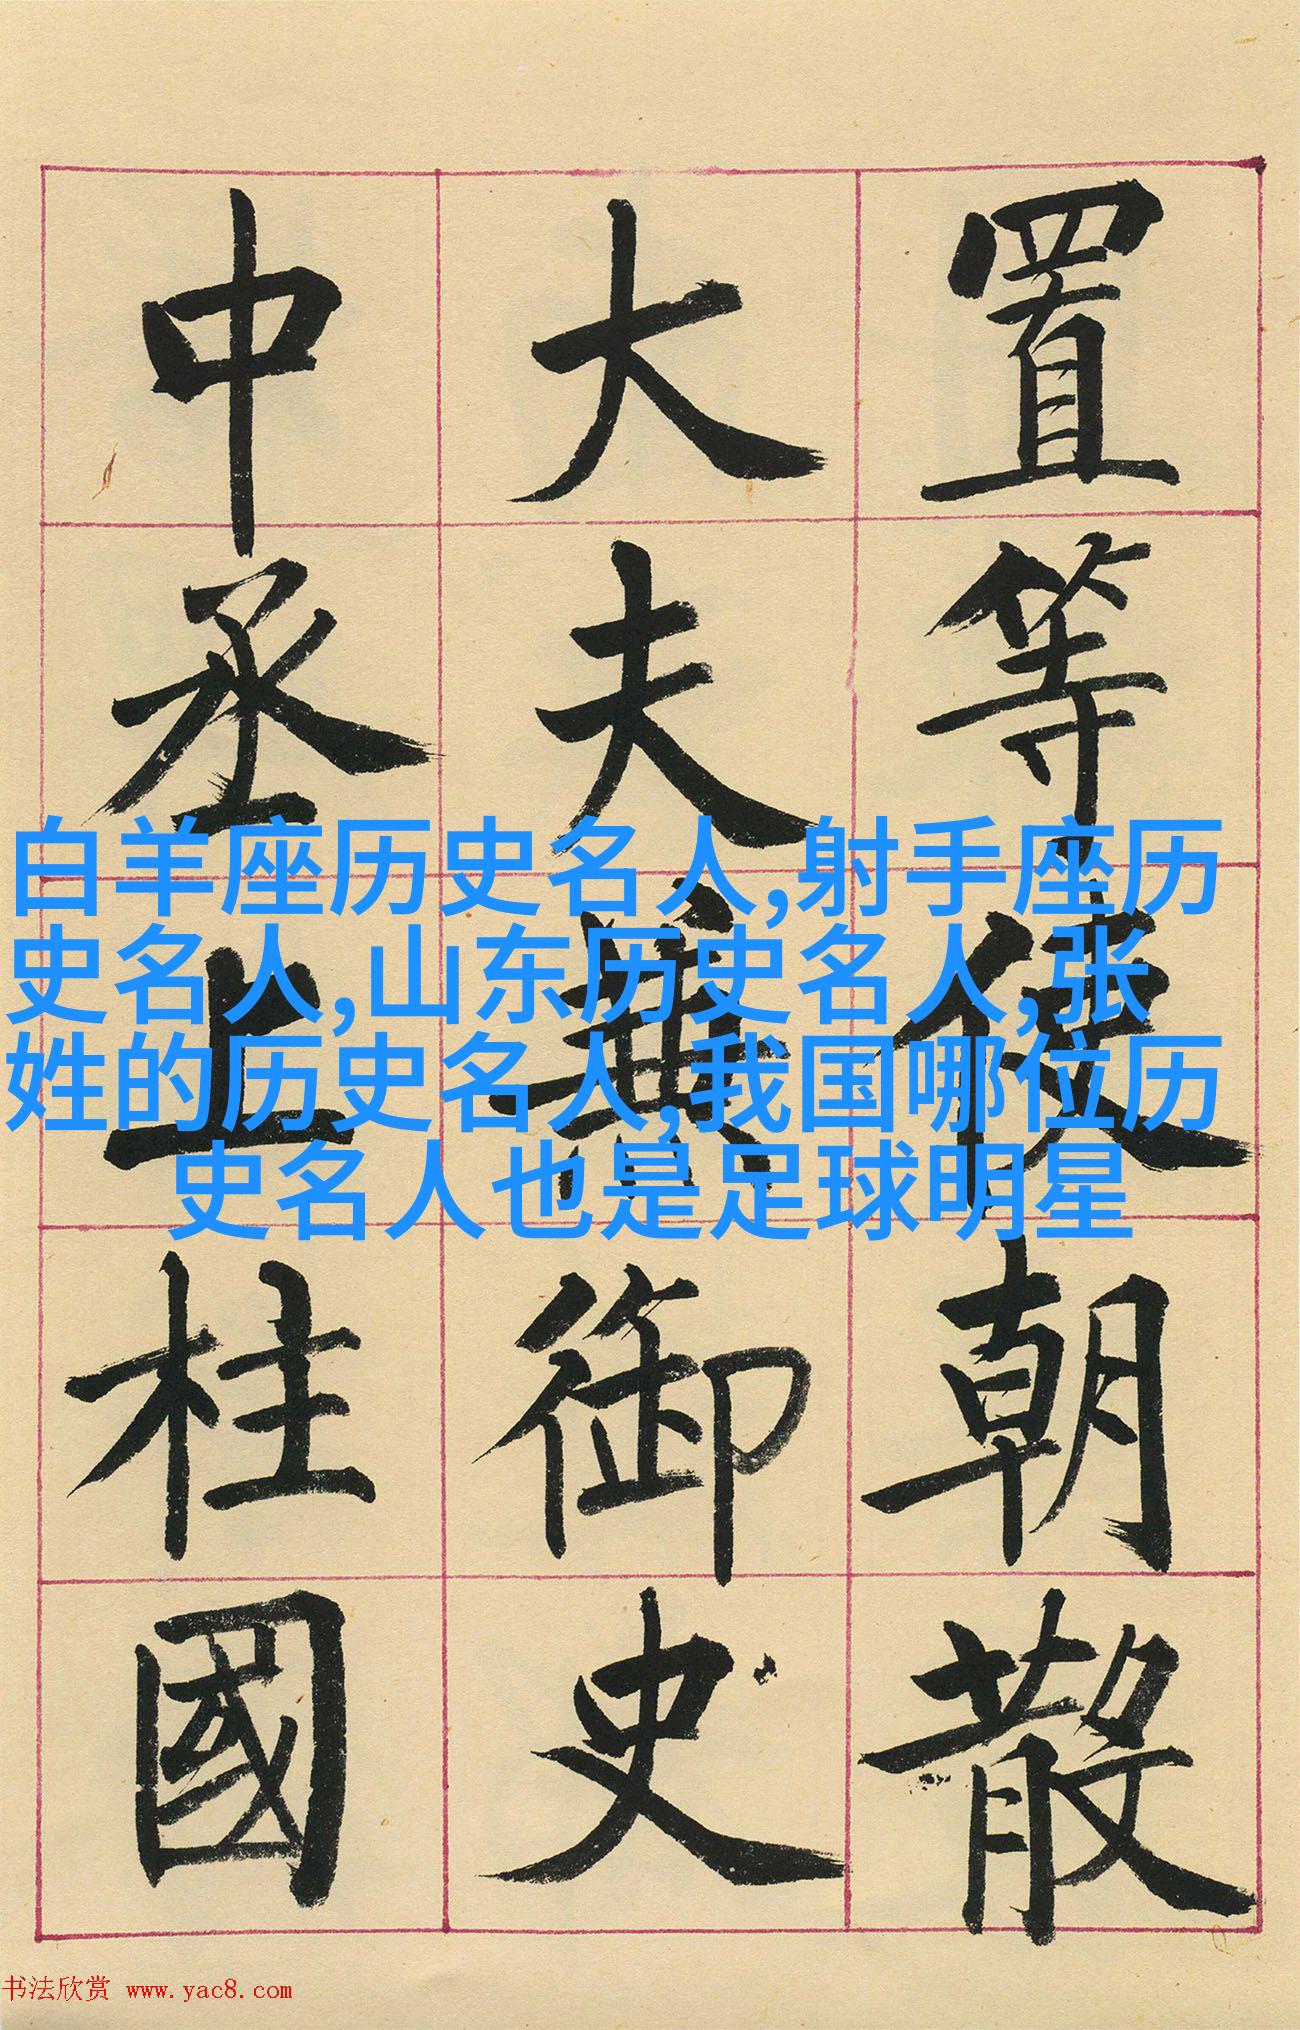 置等使朝散
大夫兼御史
中丞上柱國
白羊座历史名人,射手座历
史名人,山东历史名人,张
姓的历史名人,我国哪位历
史名人也是足球明星
书法欣赏 www.yac8.com